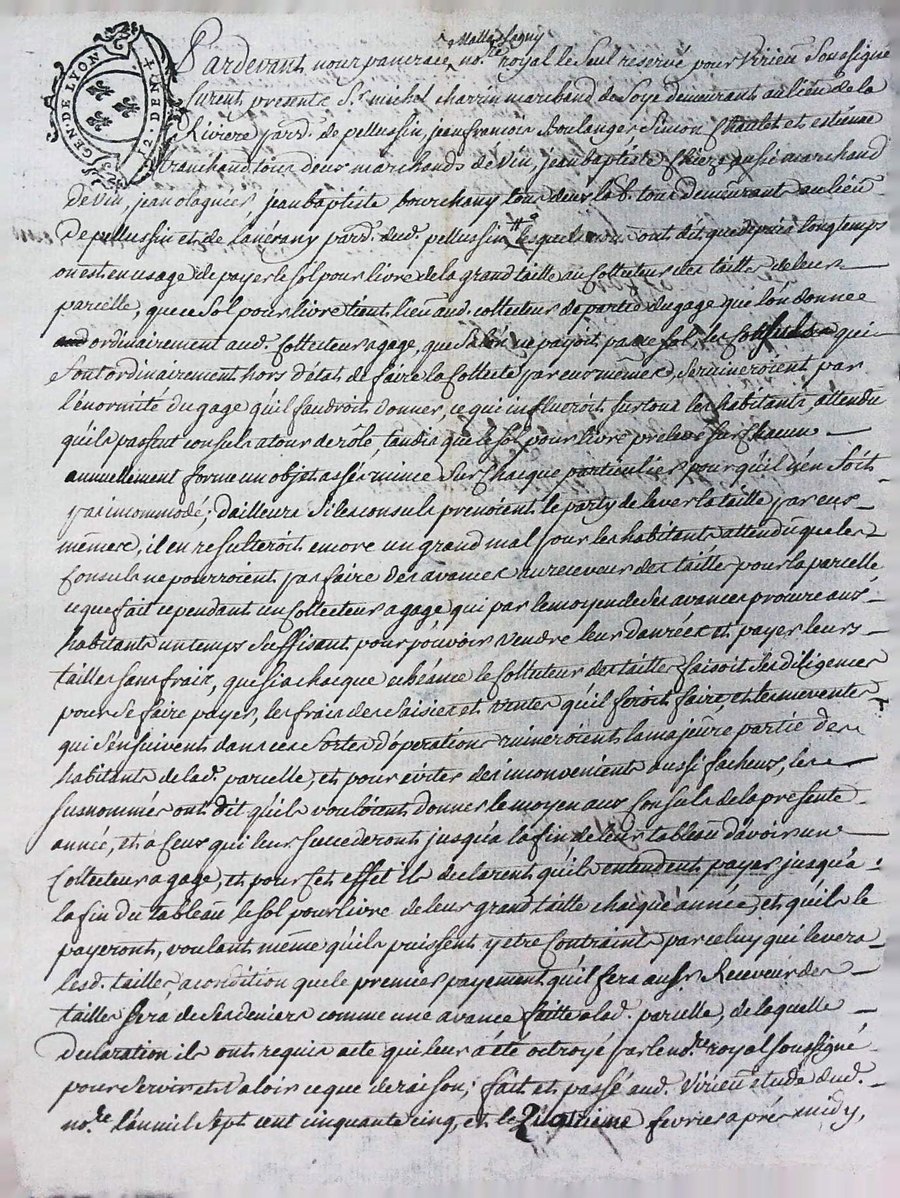 GEN. DE LYON
2. DEN
Matta Lagny
Pardevant nous pancrace no.re royal le Seul reservé pour Virieu Soussigné
furent presents Sr. michel charrin marchand de Soye demeurant au lieu de la
Riviere parr. de pellussin, jean francois Boulanger Simon Chaulet et estienne
tranchand tous deux marchands de vin, jean baptiste Chiez aussi marchand
De vin, jean olagnier, jean baptiste bourchany tous deux lab. tous demeurant au lieu
De pellussin et de lanérany parr. dud. pellussin lesquels ont dit que depuis longtemps
on est en usage de payer le sol pour livre de la grand taille au Collecteur des tailles de leur
parcelle, que ce Sol pour livre tient lieu aud. collecteur de partie du gage que lon donne
ordinairement aud. Collecteur a gage, que Si lon ne payoit pas ce Sol, les Consuls qui
Sont ordinairement hors d'état de faire la Collecte par eux mêmes, Se ruineroient par
l'énormité du gage qu'il faudroit donner, ce qui influeroit sur tous les habitants, attendu
qu'ils passent consuls a tour de rôle, tandis que le sol pour livre prelevé sur Chacun
annuellement forme un objet assés mince Sur Chacque particulier pour qu'il n'en Soit
pas incommodé; d'ailleurs Si les consuls prenoient le party de lever la taille par eux
mêmes, il en resulteroit encore un grand mal pour les habitants attendu que les
Consuls ne pourroient pas faire des avances au receveur des tailles pour la parcelle
ce que fait cependant un Collecteur a gage, qui par le moyen de Ses avances procure aux
habitants un temps Suffisant pour pouvoir vendre leur danrées et payer leurs
tailles Sans frais, que Si a chacque echéance le Collecteur des tailles faisoit Ses diligences
pour Se faire payer, les frais de Saisies et ventes qu'il feroit faire, et les mevente
qui S'ensuivent dans ces Sortes d'operations ruineroient la majeure partie des
habitants de lad. parcelle, et pour eviter des inconvenients aussi facheux, les
susnommés ont dit qu'ils vouloient donner le moyen aux Consuls de la presente
année, et a Ceux qui leur Succederont jusqu'a la fin de leur tableau d'avoir un
Collecteur a gage, et pour Cet effet ils declarent qu'ils entendent payer jusqu'a
la fin du tableau le sol pour livre de leur grand taille chacque année, et qu'ils le
payeront, voulant même qu'ils puissent y etre Contraints par celuy qui levera
lesd. tailles, a condition que le premier payement qu'il fera au Sr. Receveur des
tailles Sera de Ses deniers comme une avance faitte a lad. parcelle, de laquelle
declaration ils ont requis acte qui leur a été octroyé par le no.re royal soussigné
pour Servir et Valoir ce que de raison; fait et passé aud. Virieu etude dud.
no.re l'an mil Sept cent cinquante cinq, et le quatrieme fevrier aprés midy,